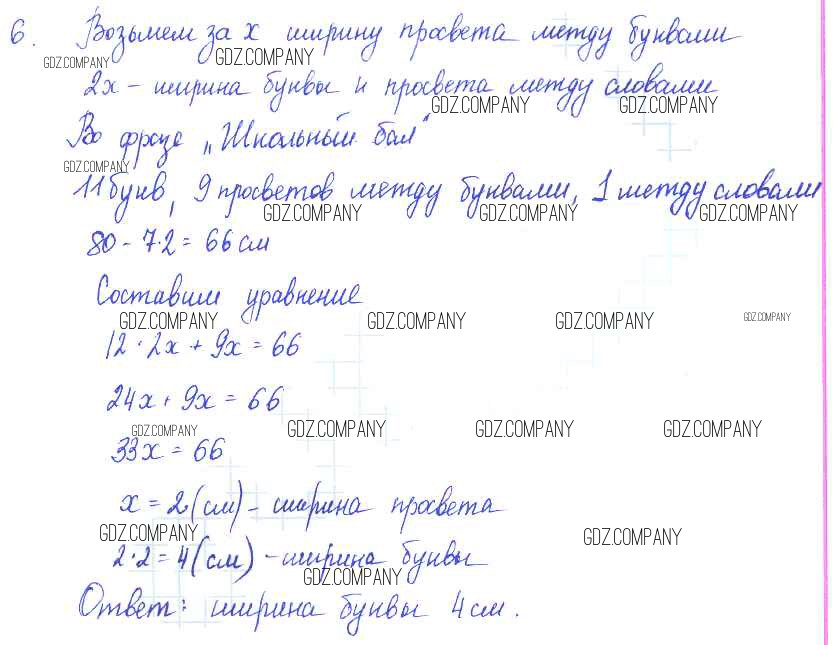 6. Возьмем за x ширину просвета между буквами
GDZ.COMPANY GDZ.COMPANY
2x – ширина буквы и просвета между словами
GDZ.COMPANY GDZ.COMPANY
Во фразе „Школьный бал“
GDZ.COMPANY
11 букв, 9 просветов между буквами, 1 между словами
GDZ.COMPANY GDZ.COMPANY GDZ.COMPANY
80 - 7·2 = 66 см
Составим уравнение
GDZ.COMPANY GDZ.COMPANY GDZ.COMPANY GDZ.COMPANY
12 · 2x + 9x = 66
24x + 9x = 66
GDZ.COMPANY GDZ.COMPANY GDZ.COMPANY GDZ.COMPANY
33x = 66
x = 2 (см) – ширина просвета
GDZ.COMPANY GDZ.COMPANY
2·2 = 4 (см) – ширина буквы
GDZ.COMPANY
Ответ: ширина буквы 4 см.